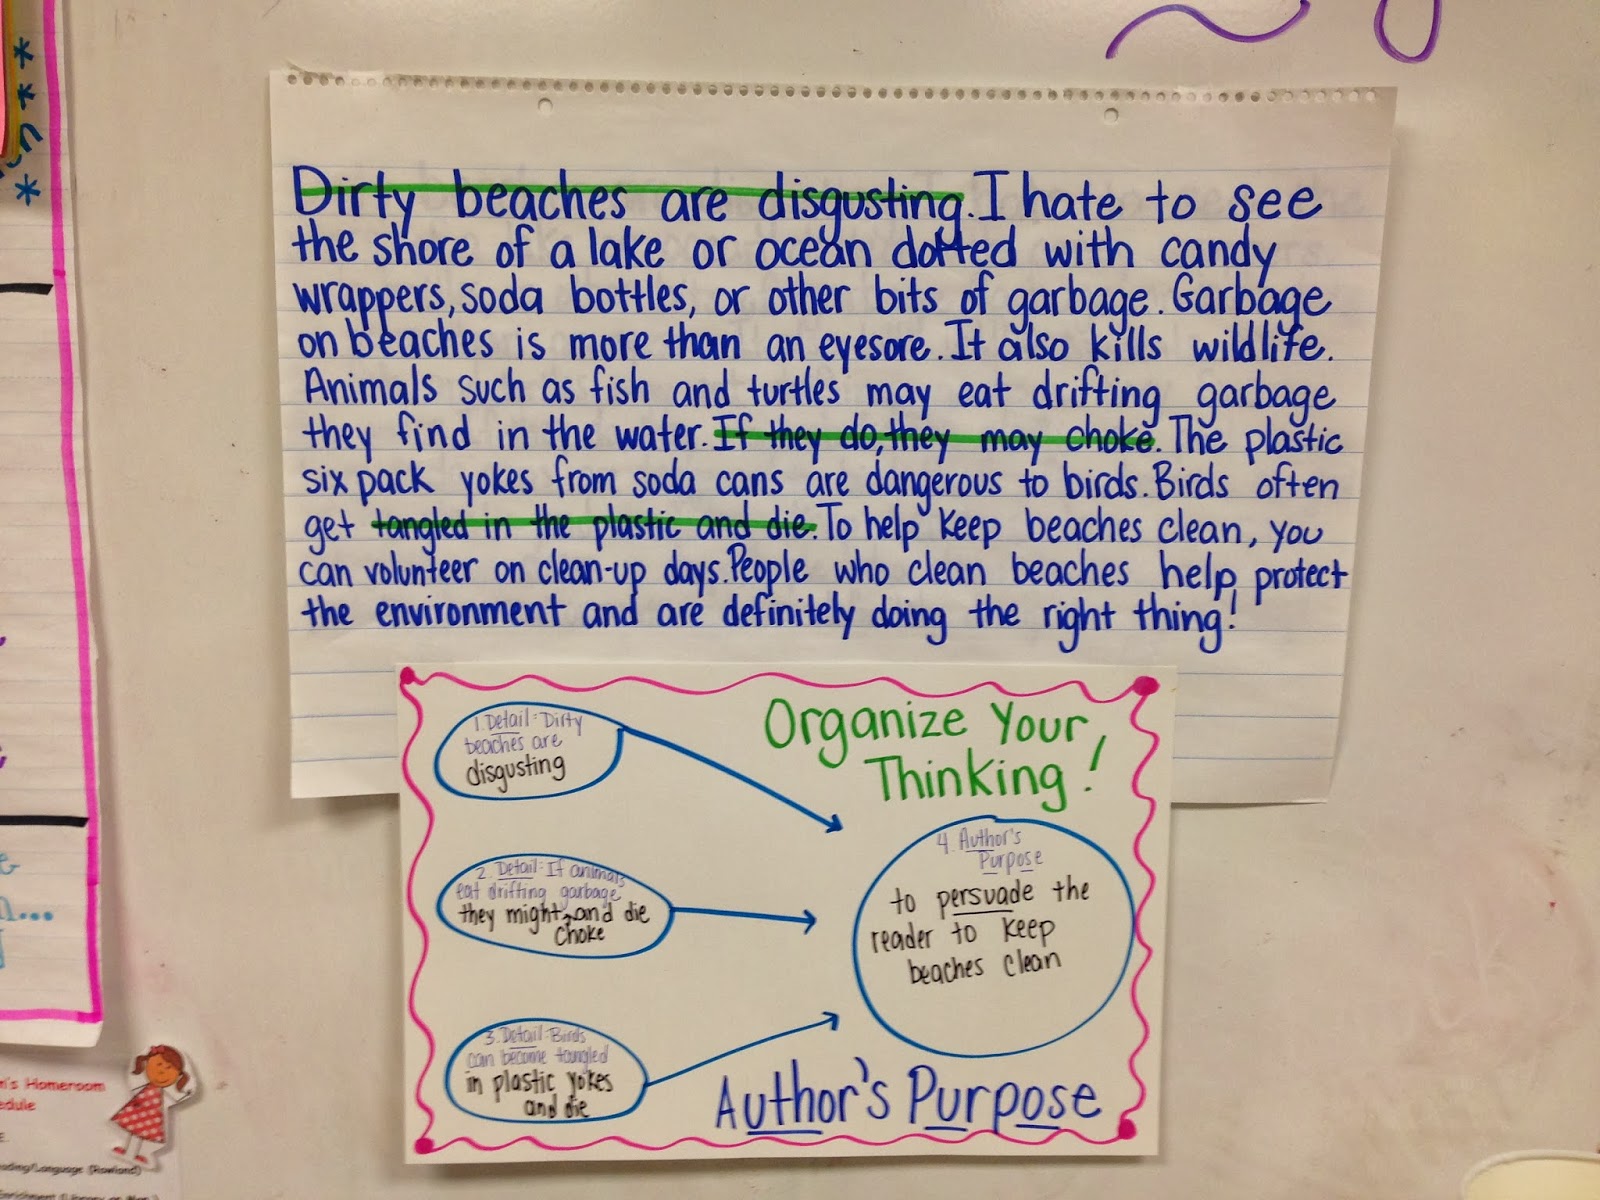 Dirty beaches are disgusting. I hate to see
the shore of a lake or ocean dotted with candy
wrappers, soda bottles, or other bits of garbage. Garbage
on beaches is more than an eyesore. It also kills wildlife.
Animals such as fish and turtles may eat drifting garbage
they find in the water. If they do, they may choke. The plastic
six pack yokes from soda cans are dangerous to birds. Birds often
get tangled in the plastic and die. To help keep beaches clean, you
can volunteer on clean-up days. People who clean beaches help protect
the environment and are definitely doing the right thing!
Organize Your
Thinking!
1. Detail: Dirty
beaches are
disgusting
2. Detail: If animals
eat drifting garbage
they might choke and die
3. Detail: Birds
can become tangled
in plastic yokes
and die
4. Author's
Purpose
to persuade the
reader to keep
beaches clean
Author's Purpose
Homeroom
(Rowland)